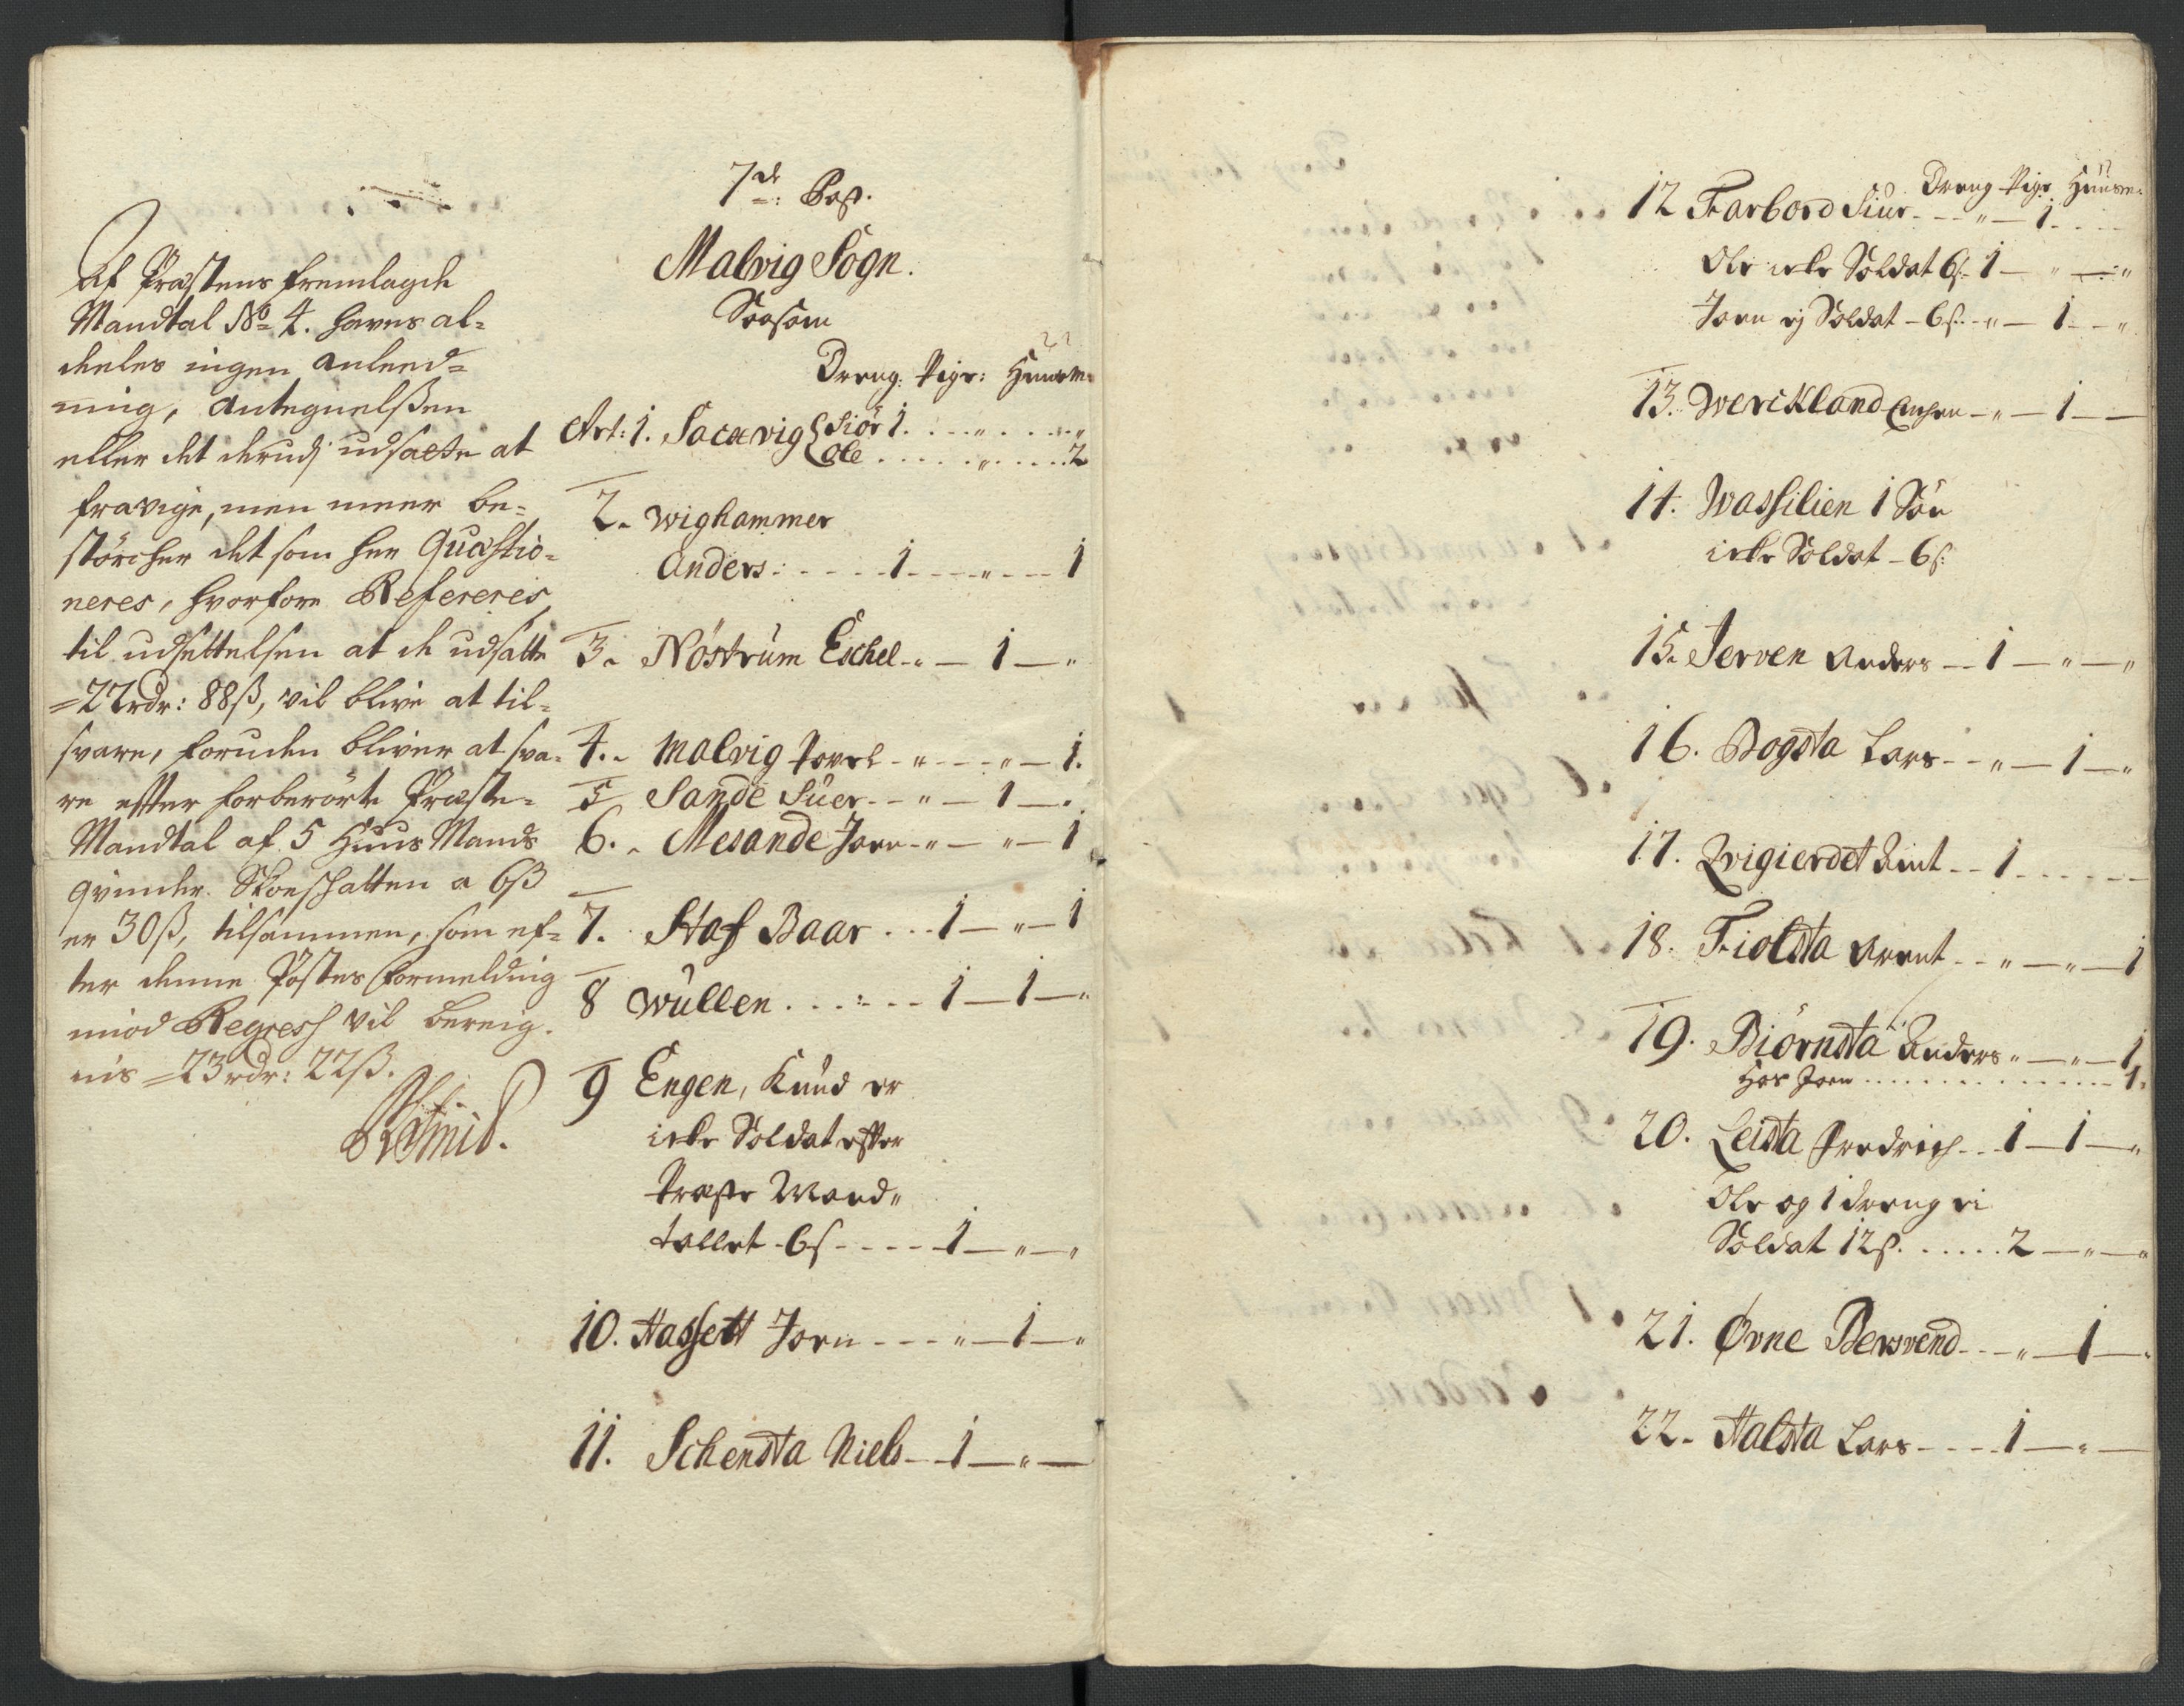 Af Præstens fremlagde
Mandtal No 4. hafves al-
deeles ingen anleed-
ning, Antegnelssen
eller det derudj udsatte at
fravige, men meer be-
störcher det som her Quæstio-
neres, hvorfore Refereris
til udsettelsen at de udsatte
=22 rdr: 88 ß, vil blive at til-
svare, foruden bliver at sva-
re efter forberörte Præste-
Mandtal af 5 Huus Mands
qvinder Skoeschatten a 6 ß
er 30 ß, tilsammen, som ef-
ter denne Postes formelding
mod Regress vil bereig-
nis =23 rdr: 22 ß.
7de: Post.
Malvig Sogn.
Saasom
Dreng: Pige: Huusm:
Art: 1. Sacavig Siör 1 . . . " . . . "
Ole . . . . . " . . . . 2
2. Wighammer
Anders: - - - - 1 - - - " - - - 1
3. Nöstrüm Eschel - " — 1 — "
4. Malvig Povel - " - - - " — 1.
5 Sande Süer - - " — 1 — "
6. Mesande Joen - " — " — 1
7. Staf Baar . . . 1 — " — 1
8 Wüllen . . . : - - - 1 — 1 — "
9 Engen, Knud er
icke Soldat efter
Præste Mand"
tallet - 6 ß - - - - - 1 — " — "
10. Hassett Joen - - - " — 1 — "
11. Schensta Niels - - 1 — " —
Dreng Pige Huusm:
12 Farbord Siur - - - " — 1 - - - -
Ole icke Soldat 6 ß - 1 — " — "
Joen ej Soldat - 6 ß - " — 1 - - "
13. Werckland - " — 1 — —
14. Wassilien 1 Sön
icke Soldat - 6 ß:
15. Jerven Anders — 1 — " — "
16. Bogsta Lars - - " — 1 — "
17. Qvigierdet - - 1 - - - - - -
18. Fiolsta Arent - - " — " — 1
19. Biörnsta Anders " — " — 1
Hos Joen . . . . . . . . . . . . . . 1.
20. Leista Fredrich - - 1 — 1 — "
Ole og 1 dreng ei
Soldat 12 ß. . . . . . 2 — " — "
21. Örne Bersvend - - - " — 1 — "
22. Halsta Lars - - - - 1 — " —